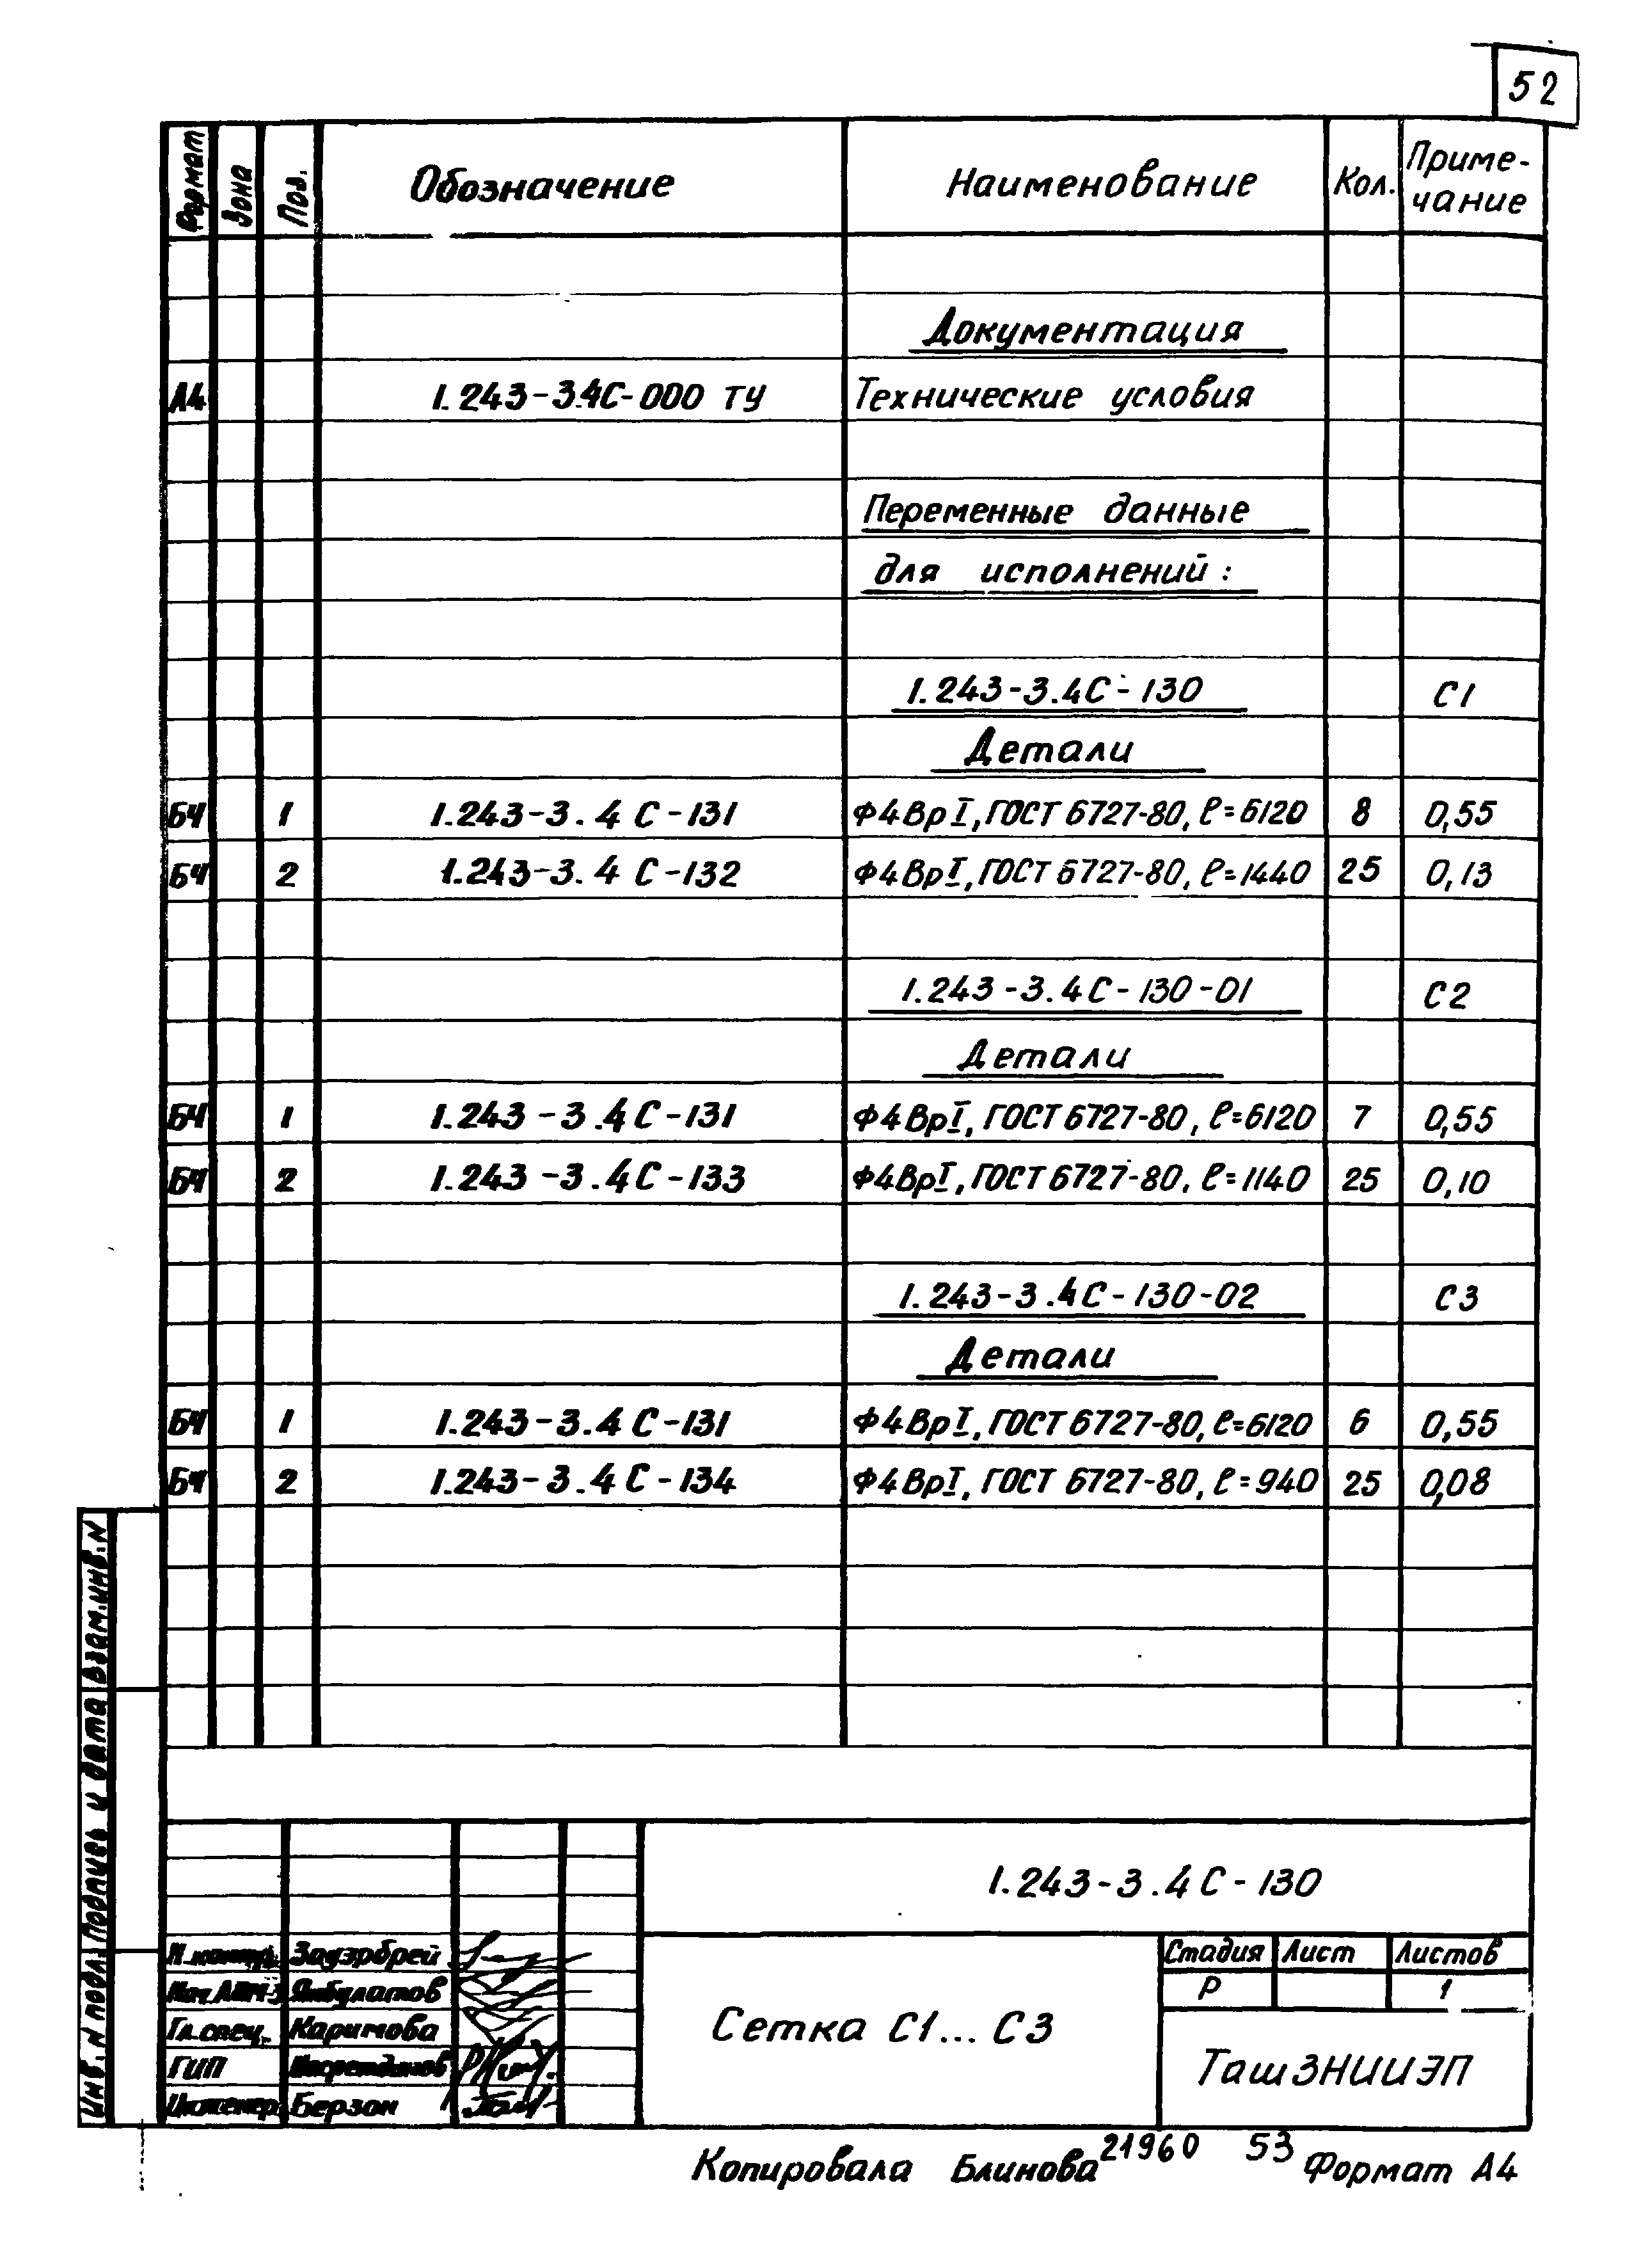 52
Формат Зона Поз. Обозначение Наименование Кол. Приме-
чание
Документация
А4 1.243-3.4С-000 ТУ Технические условия
Переменные данные
для исполнений:
1.243-3.4С-130 С1
Детали
БЧ 1 1.243-3.4С-131 Ф4ВрI, ГОСТ 6727-80, ℓ=6120 8 0,55
БЧ 2 1.243-3.4С-132 Ф4ВрI, ГОСТ 6727-80, ℓ=1440 25 0,13
1.243-3.4С-130-01 С2
Детали
БЧ 1 1.243-3.4С-131 Ф4ВрI, ГОСТ 6727-80, ℓ=6120 7 0,55
БЧ 2 1.243-3.4С-133 Ф4ВрI, ГОСТ 6727-80, ℓ=1140 25 0,10
1.243-3.4С-130-02 С3
Детали
БЧ 1 1.243-3.4С-131 Ф4ВрI, ГОСТ 6727-80, ℓ=6120 6 0,55
БЧ 2 1.243-3.4С-134 Ф4ВрI, ГОСТ 6727-80, ℓ=940 25 0,08
Взам.инв.N
Подпись и дата
Инв.N подл.
1.243-3.4С-130
Н.контр. Зауэрбрей
Нач. Янбулатов
Гл.спец. Каримова
ГИП
Инженер Берзон
Сетка С1...С3
Стадия Лист Листов
Р 1
ТашЗНИИЭП
Копировала Блинова 21960 53 Формат А4